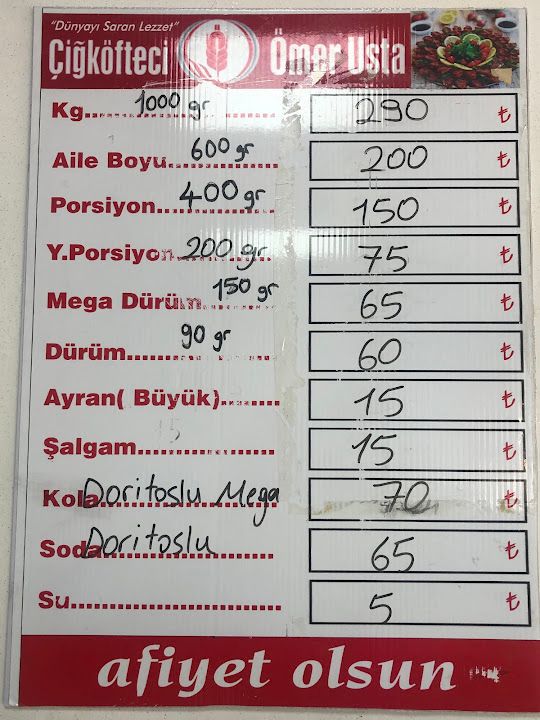 "Dünyayı Saran Lezzet"
Çiğköfteci Ömer Usta
Kg 1000 gr 290 ₺
Aile Boyu 600 gr 200 ₺
Porsiyon 400 gr 150 ₺
Y.Porsiyon 200 gr 75 ₺
Mega Dürüm 150 gr 65 ₺
Dürüm 90 gr 60 ₺
Ayran( Büyük) 15 ₺
Şalgam 15 ₺
Kola Doritoslu Mega 70 ₺
Soda Doritoslu 65 ₺
Su 5 ₺
afiyet olsun